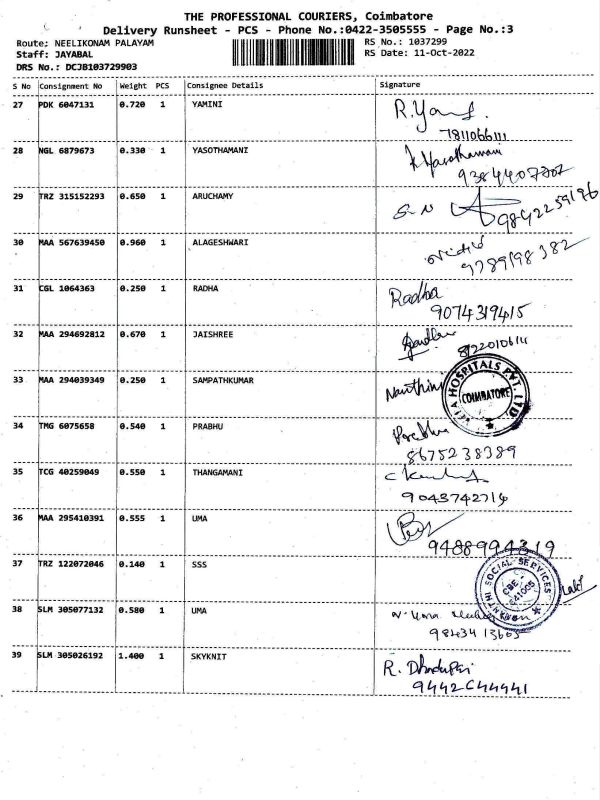 THE PROFESSIONAL COURIERS, Coimbatore
Delivery Runsheet - PCS - Phone No.:0422-3505555 - Page No.:3
Route: NEELIKONAM PALAYAM
RS No.: 1037299
Staff: JAYABAL
RS Date: 11-Oct-2022
DRS No.: DCJB103729903
S No Consignment No Weight PCS Consignee Details Signature
27 PDK 6047131 0.720 1 YAMINI R.
7811066111
28 NGL 6879673 0.330 1 YASOTHAMANI
29 TRZ 315152293 0.650 1 ARUCHAMY S. N
9842259196
30 MAA 567639450 0.960 1 ALAGESHWARI
9789198382
31 CGL 1064363 0.250 1 RADHA Radha
9074319415
32 MAA 294692812 0.670 1 JAISHREE
33 MAA 294039349 0.250 1 SAMPATHKUMAR
HOSPITALS PVT. LTD
COIMBATORE
34 TMG 6075658 0.540 1 PRABHU
8675238389
35 TCG 40259049 0.550 1 THANGAMANI
9043742714
36 MAA 295410391 0.555 1 UMA
9488994319
37 TRZ 122072046 0.140 1 SSS
SOCIAL SERVICES
CBE -
641005
38 SLM 305077132 0.580 1 UMA
98434 13603
39 SLM 305026192 1.400 1 SKYKNIT R.
9442644441